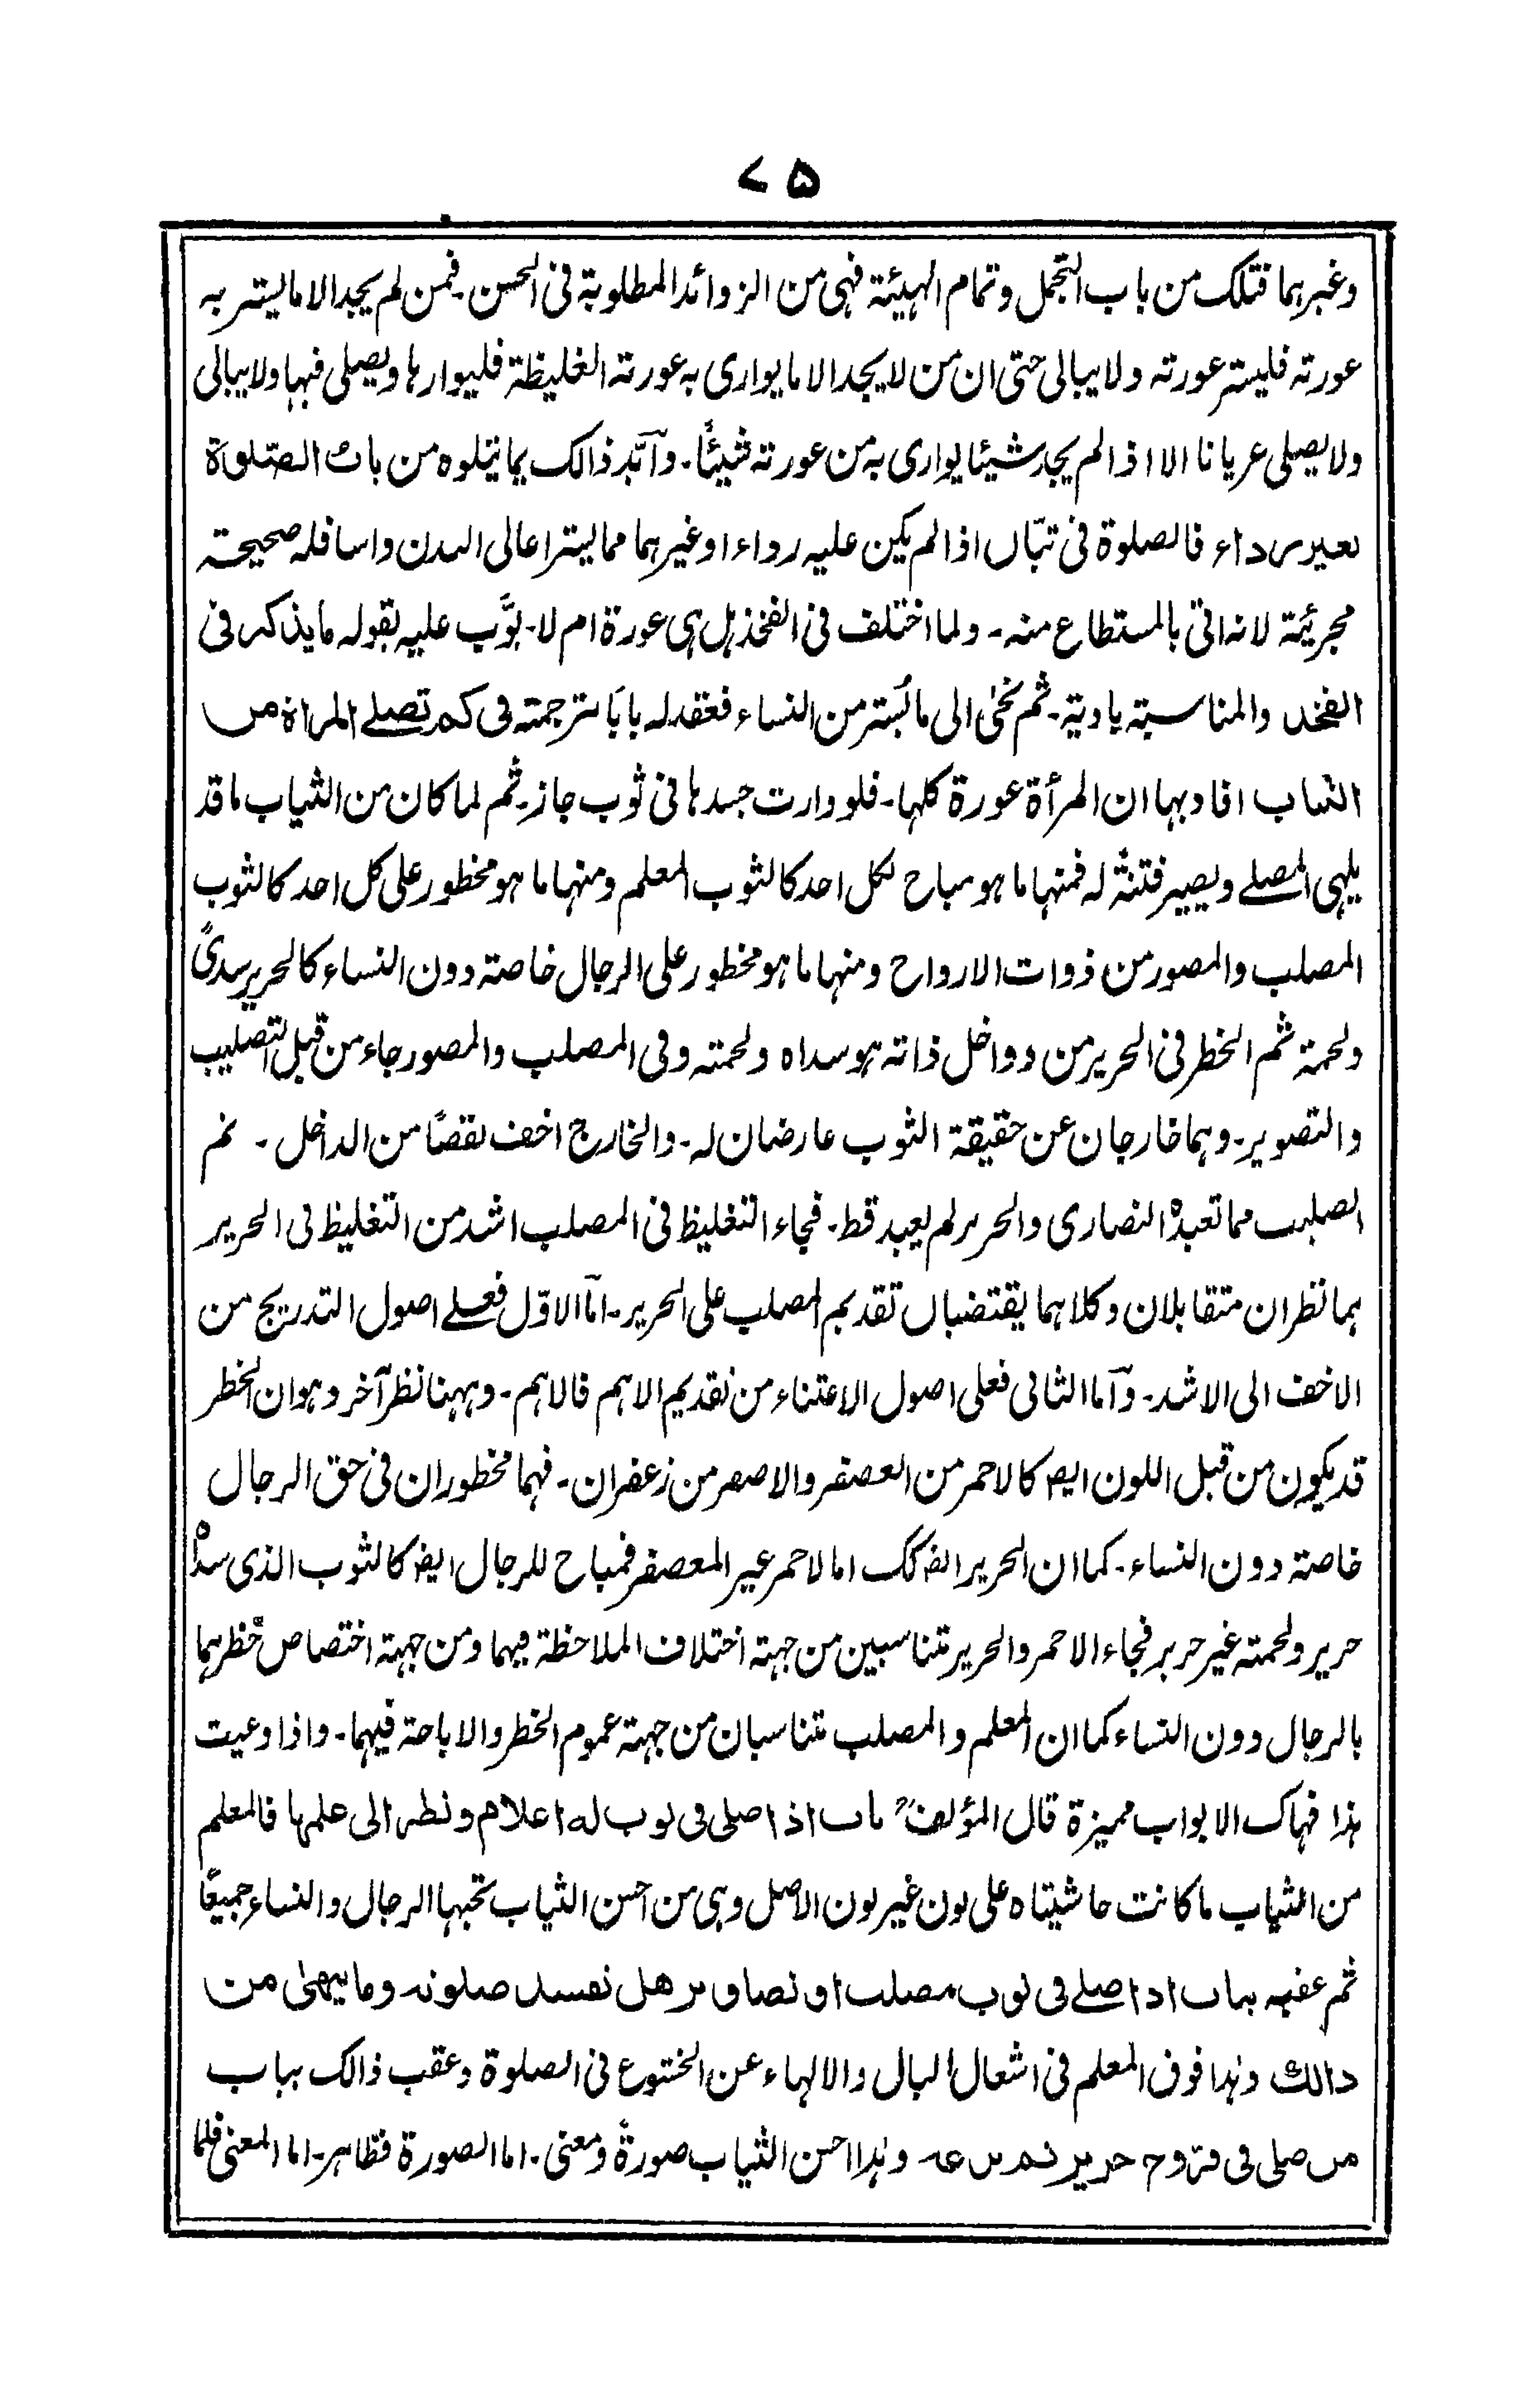 ۷۵
وغیرہما فتلک من باب التجمل وتمام الہیئة فہی من الزوائد المطلوبة فی الحسن۔ فمن لم یجد الا ما یستر بہ
عورتہ فلیستر عورتہ ولا یبالی حتی ان من لا یجد الا ما یواری بہ عورتہ الغلیظة فلیوارہا ویصلی فیہا ولا یبالی
ولا یصلی عریانا الا اذا لم یجد شیئا یواری بہ من عورتہ شیئًا۔ وآیّد ذالک بما یتلوہ من باب الصّلوٰة
بغیر رداء فالصلوة فی تبّان اذا لم یکن علیہ رداء او غیرہما مما یستر اعالی البدن واسافلہ صحیحتہ
مجرئیة لانہ اتی بالمستطاع منہ۔ ولما اختلف فی الفخذ ہل ہی عورة ام لا۔ بوَّب علیہ بقولہ ما یذکر فی
الفخذ والمناسبتہ بادیة۔ ثم نحٰی الی ما تُستر من النساء فعقد لہ بابًا ترجمتہ فی کم تصلے المراة من
الثیاب افاد بہا ان المرأة عورة کلہا۔ فلو وارت جسدہا فی ثوب جاز۔ ثم لما کان من الثیاب ما قد
یلہی المصلے ویصیر فتنةً لہ فمنہا ما ہو مباح لکل احد کالثوب المعلم ومنہا ما ہو مخطور علی کل احد کالثوب
المصلب والمصور من ذوات الارواح ومنہا ما ہو مخطور علی الرجال خاصتہ دون النساء کالحریر سدیً
ولحمة ثم الخطر فی الحریر من دواخل ذاتہ ہو سداہ ولحمتہ وفی المصلب والمصور جاء من قبل التصلیب
والتصویر۔ وہما خارجان عن حقیقة الثوب عارضان لہ۔ والخارج اخف نقصًا من الداخل۔ ثم
الصلیب مما تعبدہ النصاری والحریر لم یعبد قط۔ فجاء التغلیظ فی المصلب اشد من التغلیظ فی الحریر
ہما نظران متقابلان وکلاہما یقتضیان تقدیم المصلب علی الحریر۔ امّا الاوّل فعلے اصول التدریج من
الاخف الی الاشد۔ وآما الثانی فعلی اصول الاعتناء من تقدیم الاہم فالاہم۔ وہہنا نظر آخر وہو ان الخطر
قد یکون من قبل اللون ایضہ کالاحمر من العصفر والاصفر من زعفران۔ فہما مخطوران فی حق الرجال
خاصتہ دون النساء۔ کما ان الحریر ایضہ کک اما لاحمر غیر المعصفر فمباح للرجال ایضہ کالثوب الذی سداہ
حریر ولحمتہ غیر حریر فجاء الاحمر والحریر متناسبین من جہتہ اختلاف الملاحظة فیہما ومن جہتہ اختصاص خطرہما
بالرجال دون النساء کما ان المعلم والمصلب متناسبان من جہتہ عموم الخطر والاباحة فیہما۔ واذا وعیت
ہذا فہاک الابواب ممیزة قال المؤلفؒ باب اذا صلی فی ثوب لہ اعلام ونظر الی علمہا فالمعلم
من الثیاب ما کانت حاشیتاہ علی لون غیر لون الاصل وہی من احسن الثیاب تحبہا الرجال والنساء جمیعًا
ثم عقبہ بباب اذا صلے فی ثوب مصلب او تصاویر ھل تفسد صلوتہ وما ینھیٰ من
ذالک وہذا فوق المعلم فی اشغال البال والالہاء عن الخشوع فی الصلوة وعقب ذالک بباب
من صلی فی فرّوج حریر ثم نزعہ وہذا احسن الثیاب صورةً ومعنی۔ اما الصورة فظاہر۔ اما المعنی فلما